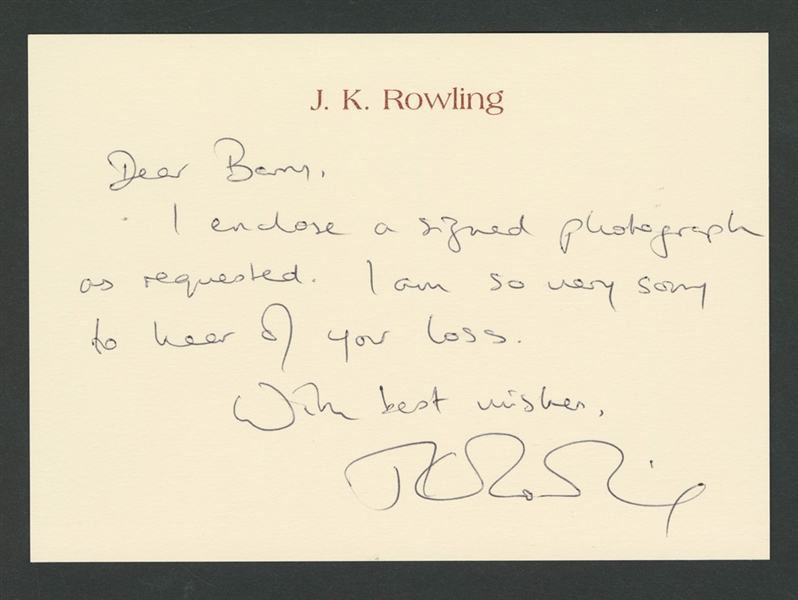 J. K. Rowling
Dear Barry,
I enclose a signed photograph
as requested. I am so very sorry
to hear of your loss.
With best wishes,
JKRowling